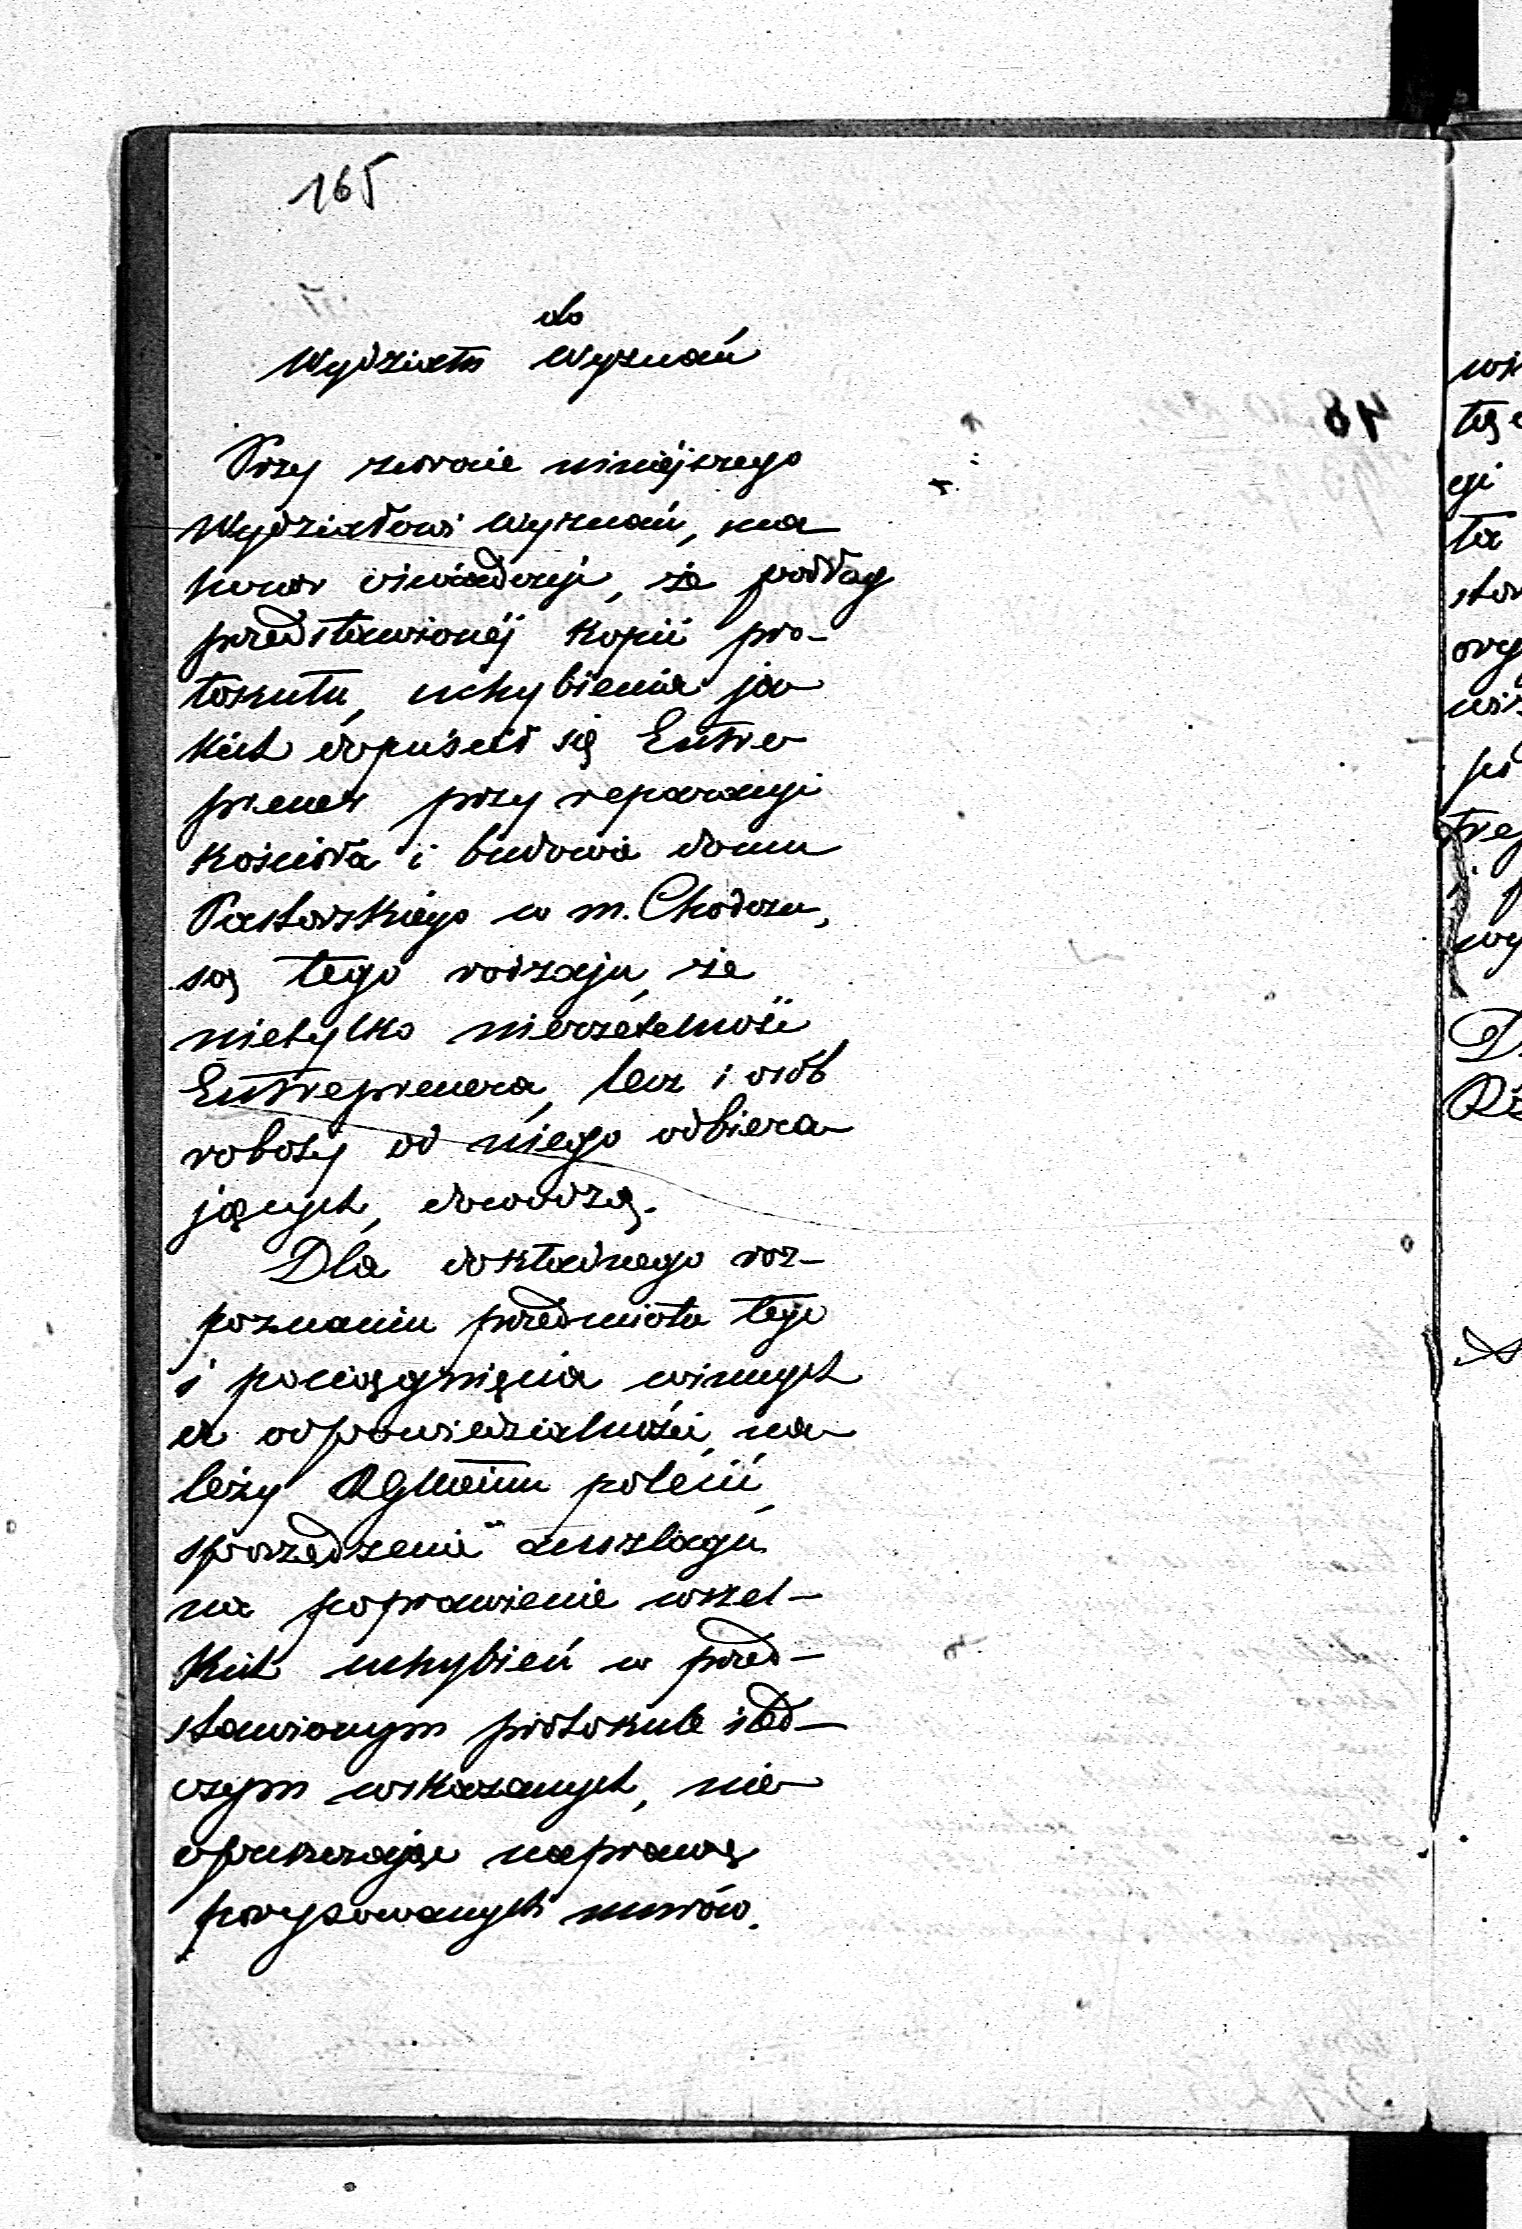 165
do
Wydziału Wyznań
Przy zwrocie niniejszego
Wydziałowi Wyznań, ma
honor oświadczyć, że podług
przedstawionéj kopii pro-
tokułu, uchybienia ja
kich dopuścił się Entre
prener przy reparacyi
kościoła i budowie domu
Pastorskiego w m. Chodczu,
są tego rodzaju, że
nietylko nierzetelność
Entreprenera, lecz i osób
roboty od niego odbiera
jących, dowodzą.
Dla dokładnego roz-
poznania przedmiotu tego
i pociągnięcia winnych
do odpowiedzialności, na
leży polecić
sporządzenie anszlagu
na poprawienie wszel-
kich uchybień w przed-
stawionym protokule śled-
czym wskazanych, nie
opuszczając naprawę
porysowanych murów.